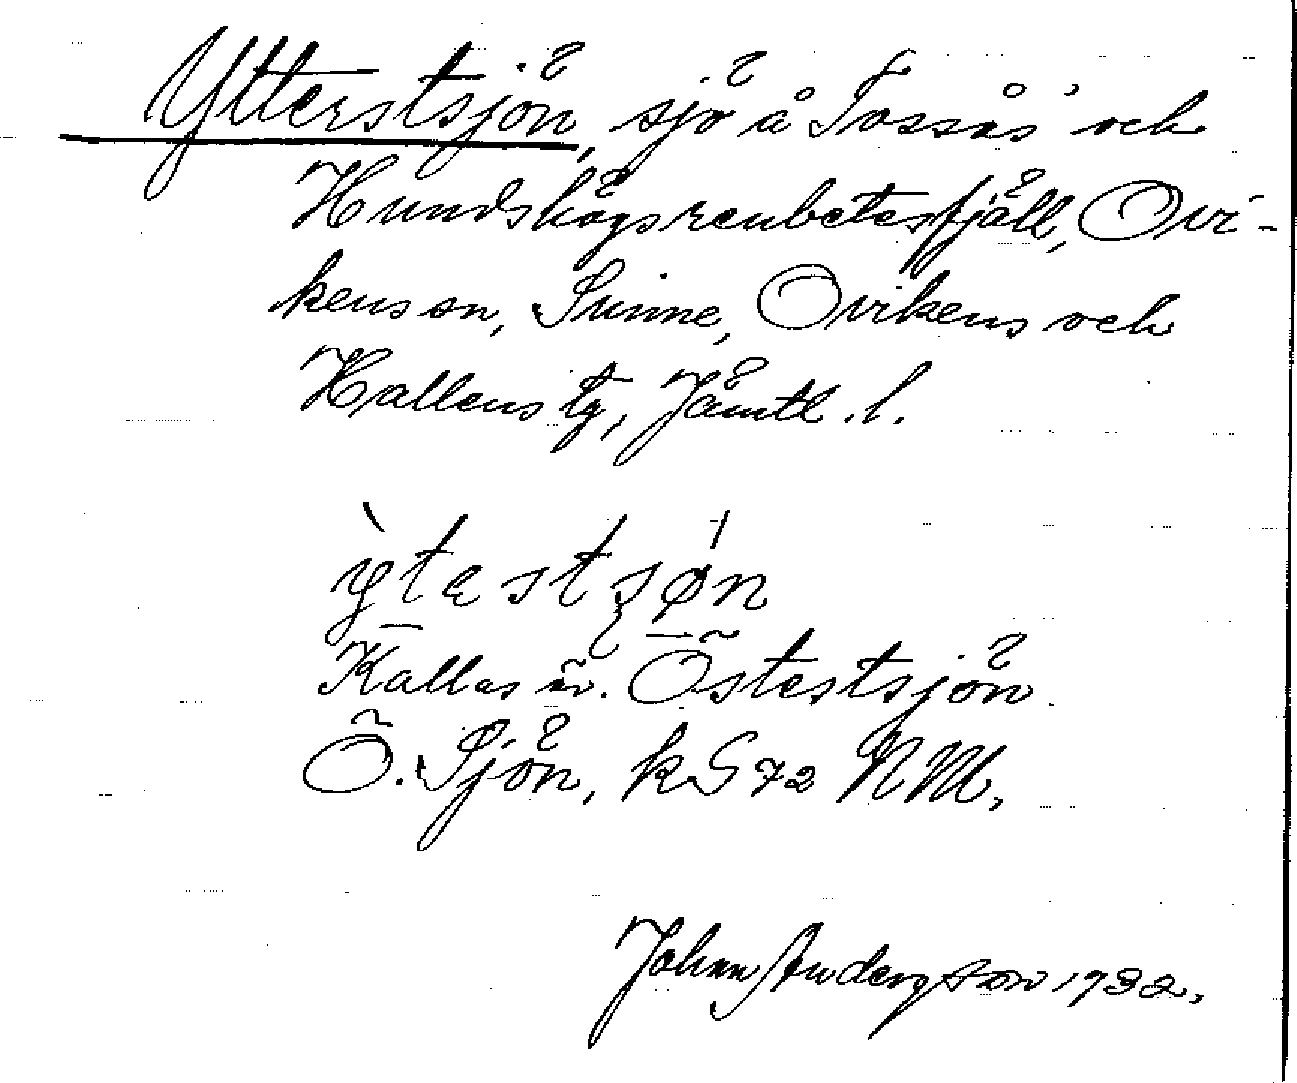 Ytterstsjön, sjö å Tossås och
Hundshögsrenbetesfjäll, Ovi-
kens sn, Sunne, Ovikens och
Hallens tg, Jämtl. l.
ỳtestʂǿn
Kallas äv. Östestsjön
Ö. Sjön, k G 72 NM,
Johan Anderzson 1932.